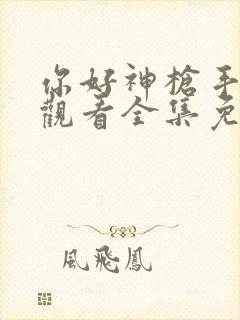 你好神槍手
觀看全集免
風飛鳳